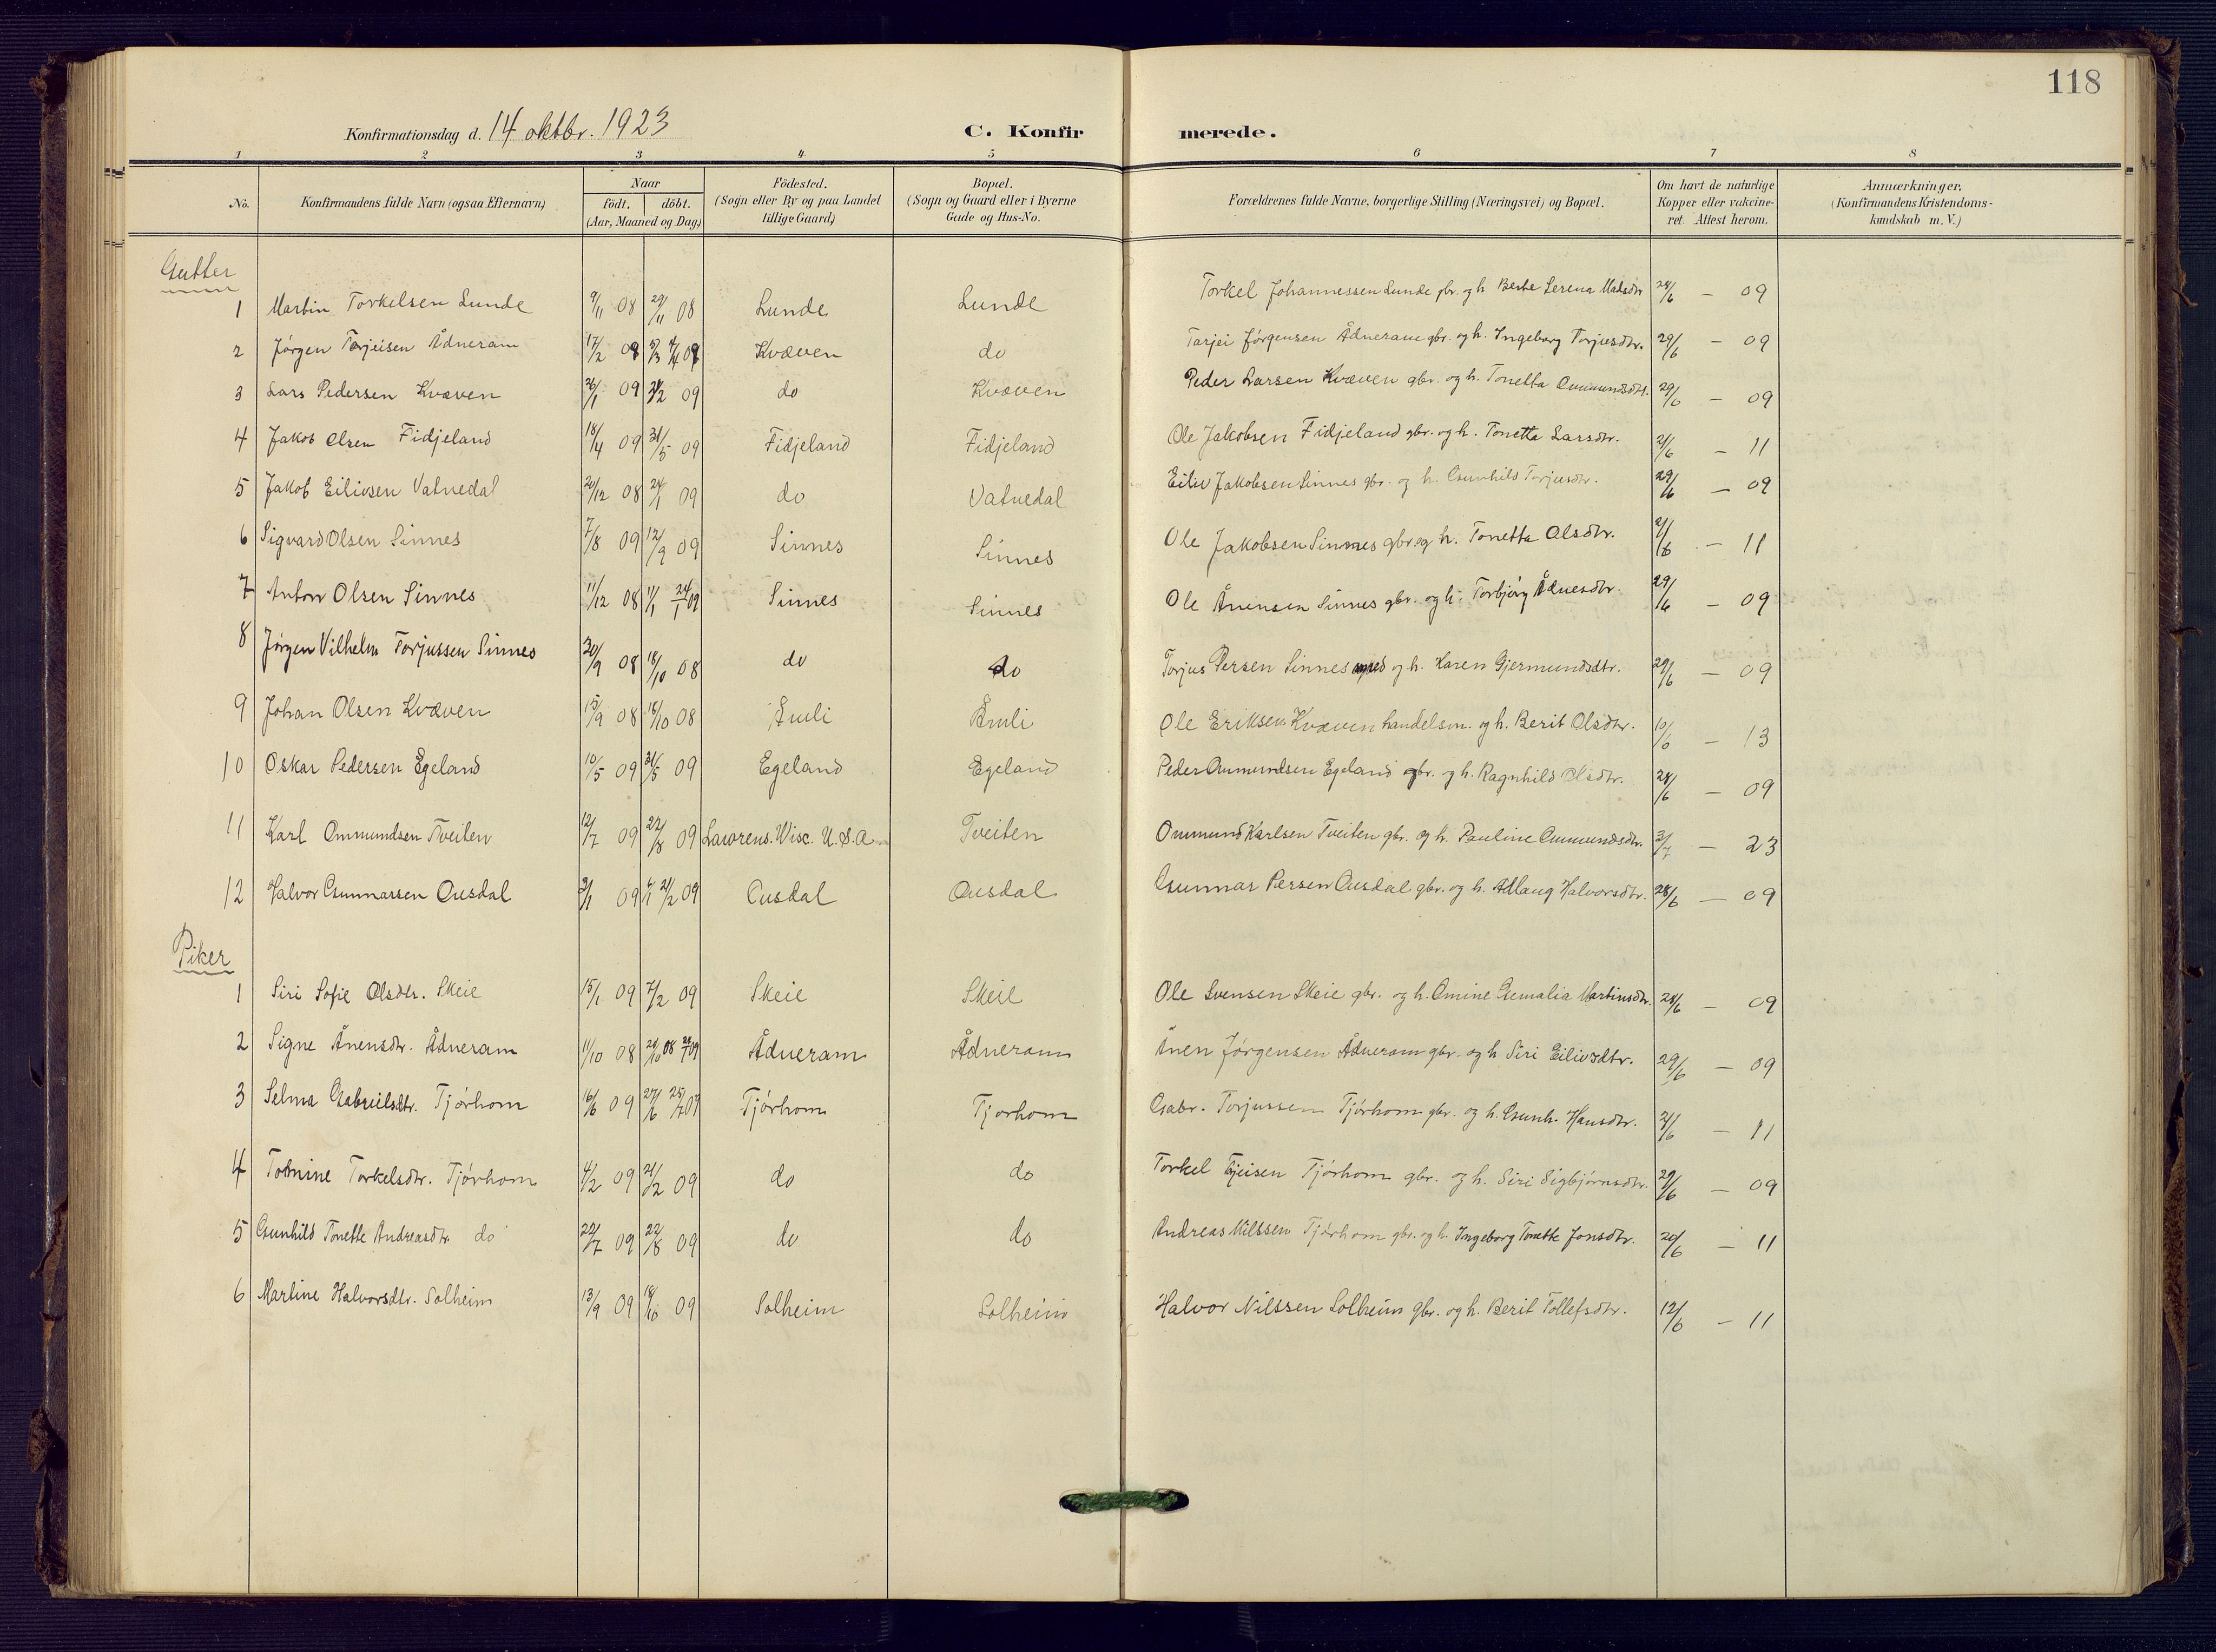 118
Konfirmationsdag d. 14 oktbr. 1923 C. Konfirmerede.
1 2 3 4 5 6 7 8
No. Konfirmandens fulde Navn (ogsaa Efternavn) Naar födt. döbt. (Aar, Maaned og Dag) Födested. (Sogn eller By og paa Landet tillige Gaard) Bopæl. (Sogn og Gaard eller i Byerne Gade og Hus-No. Forældrenes fulde Navne, borgerlige Stilling (Næringsvei) og Bopæl. Om havt de naturlige Kopper eller vakcineret. Attest herom. Anmærkninger. (Konfirmandens Kristendomskundskab m. V.)
Gutter
1 Martin Torkelsen Lunde 9/11 08 29/11 08 Lunde Lunde Torkel Johannessen Lunde gbr. og h. Berte Serena Madsdtr 28/6 – 09
2 Jörgen Tarjeisen Ådneram 17/2 09 4/4 09 Kvæven do Tarjei Jörgensen Ådneram gbr. og h. Ingeborg Torjusdtr. 29/6 – 09
3 Lars Pedersen Kvæven 26/1 09 21/2 09 do Kvæven Peder Larsen Kvæven gbr. og h. Tonetta Ommundsdtr. 29/6 – 09
4 Jakob Olsen Fidjeland 18/4 09 31/5 09 Fidjeland Fidjeland Ole Jakobsen Fidjeland gbr. og h. Tonetta Larsdtr. 21/6 – 11
5 Jakob Eilivsen Vatnedal 20/12 08 24/1 09 do Vatnedal Eiliv Jakobsen Sinnes gbr. og h. Gunhild Torjusdtr. 29/6 – 09
6 Sigvard Olsen Sinnes 7/8 09 12/9 09 Sinnes Sinnes Ole Jakobsen Sinnes gbr. og h. Tonetta Olsdtr. 21/6 – 11
7 Anton Olsen Sinnes 11/12 08 1/1 24/1 09 Sinnes Sinnes Ole Ånensen Sinnes gbr. og h. Torbjörg Ådnesdtr. 29/6 – 09
8 Jörgen Vilhelm Torjussen Sinnes 20/9 08 18/10 08 do do Torjus Persen Sinnes og h. Karen Gjermundsdtr. 29/6 – 09
9 Johan Olsen Kvæven 15/9 08 18/10 08 Åmli Åmli Ole Eriksen Kvæven handelsm. og h. Berit Olsdtr. 10/6 – 13
10 Oskar Pedersen Egeland 10/5 09 31/5 09 Egeland Egeland Peder Ommundsen Egeland gbr. og h. Ragnhild Olsdtr. 28/6 – 09
11 Karl Ommundsen Tveiten 12/7 09 22/8 09 Lawrens. Wisc. U.S.A. Tveiten Ommund Karlsen Tveiten gbr. og h. Pauline Ommundsdtr. 3/7 – 23
12 Halvor Gunnarsen Ousdal 3/1 09 21/2 09 Ousdal Ousdal Gunnar Persen Ousdal gbr. og h. Adlaug Halvorsdtr. 28/6 – 09
Piker
1 Siri Sofie Olsdtr. Skeie 15/1 09 7/2 09 Skeie Skeie Ole Svensen Skeie gbr. og h. Omine Gemalia Martinsdtr. 28/6 – 09
2 Signe Ånensdtr. Ådneram 11/10 08 24/10 08 Ådneram Ådneram Ånen Jörgensen Ådneram gbr. og h Siri Eilivsdtr. 29/6 – 09
3 Selma Gabrielsdtr. Tjörhom 16/6 09 27/6 25/7 09 Tjörhom Tjorhom Gabr. Torjussen Tjörhom gbr. og h. Gunh. Hansdtr. 21/6 – 11
4 Tomine Torkelsdtr. Tjörhom 4/2 09 21/2 09 do do Torkel Tjeisen Tjörhom gbr. og h. Siri Sigbjörnsdtr. 29/6 – 09
5 Gunhild Tonette Andreasdtr. do 22/7 09 22/8 09 do do Andreas Nilssen Tjörhom gbr. og h. Ingeborg Tonette Jonsdtr. 20/6 – 11
6 Martine Halvorsdtr. Solheim 13/9 09 18/10 09 Solheim Solheim Halvor Nilssen Solheim gbr. og h. Berit Tollefsdtr. 12/6 – 11